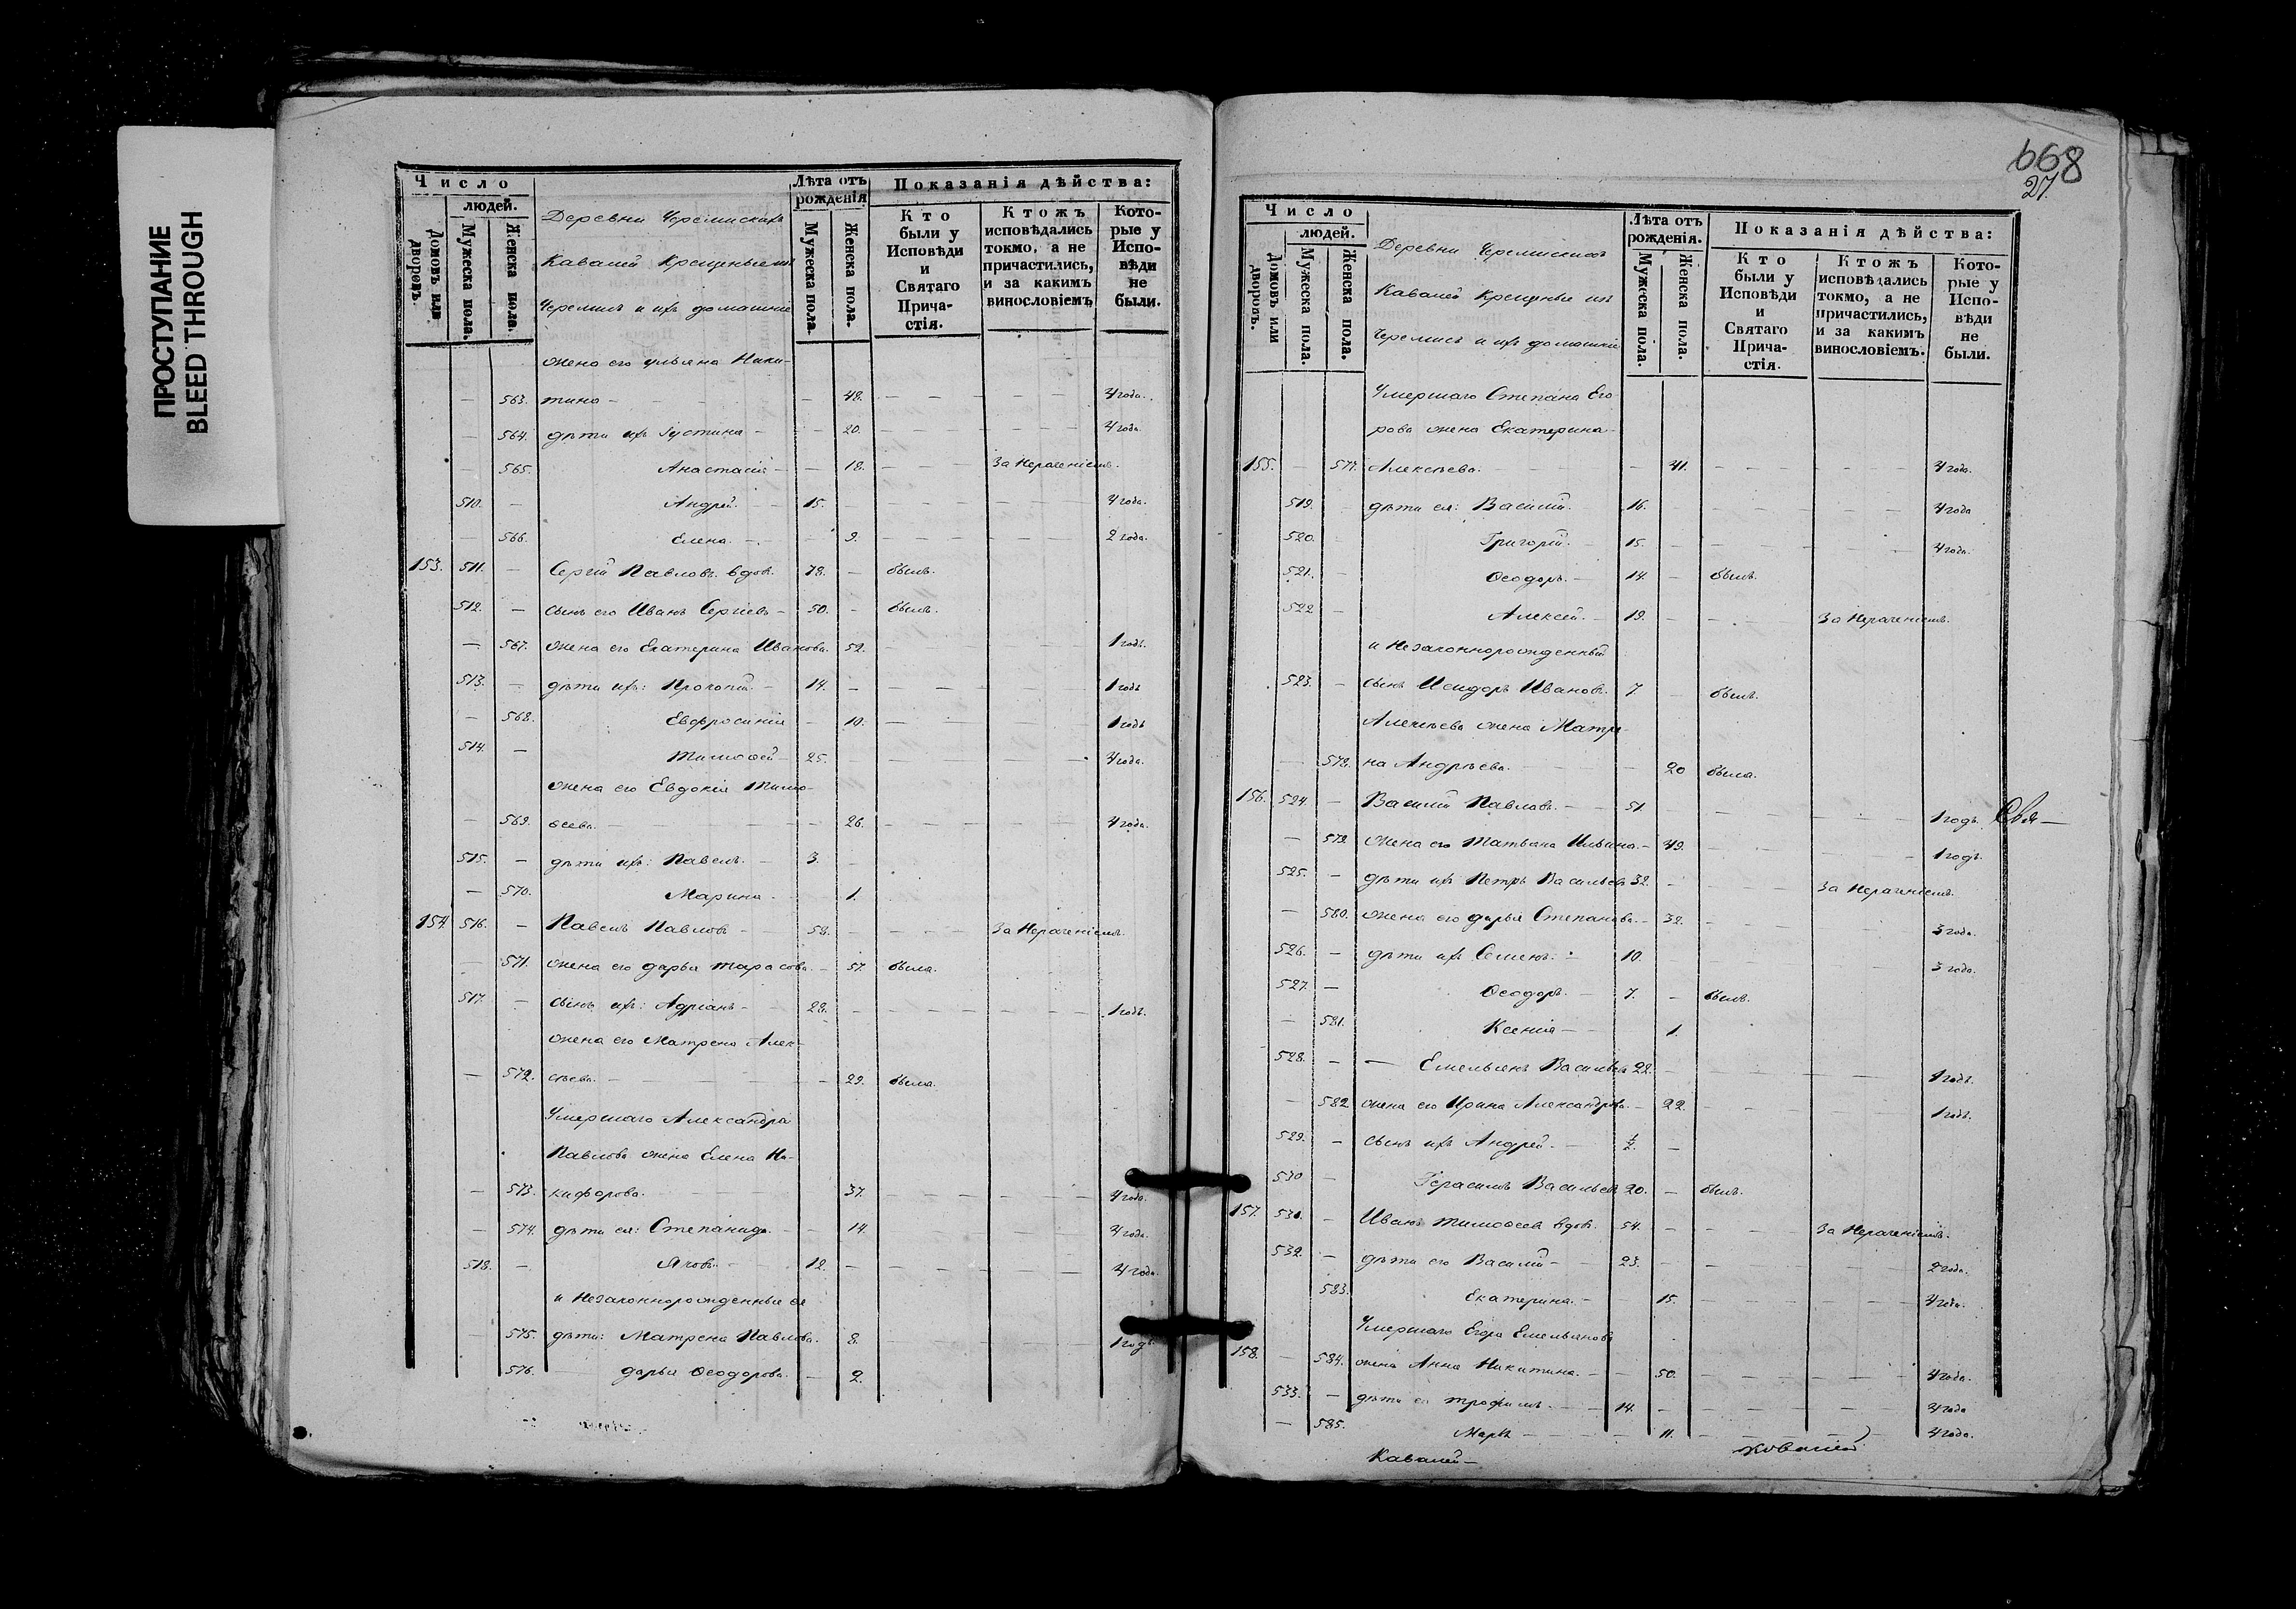 ПРОСТУПАНИЕ
BLEED THROUGH
Число
людей.
Домовъ или дворовъ.
Мужеска пола.
Женска пола.
Деревни Черемискихъ
Кавалей крещеные изъ
Черемисъ и ихъ домашніе
Лѣта отъ рожденія
Мужеска пола.
Женска пола.
Показанія дѣйства:
Кто были у Исповѣди и Святаго Причастія.
Ктожъ исповѣдались токмо, а не причастились, и за какимъ винословіемъ
Которые у Исповѣди не были.
жена его Ульяна Ники-
— 563. тина — — 48. — — — 4 года.
— 564. дѣти ихъ Іустина — — 20. — — — 4 года.
— 565. Анастасія — — 18. — — За нераченіемъ.
510. — Андрей. — 15. — — — 4 года.
— 566. Елена. — — 9. — — — 2 года.
153. 511. — Сергій Павловъ вдов. 78. — былъ.
512. — сынъ его Иванъ Сергіевъ — 50. — былъ.
— 567. жена его Екатерина Иванова. 52. — — — 1 годъ.
513. — дѣти ихъ: Прокопій. — 14. — — — 1 годъ
— 568. Евфросинія — 10. — — — 1 годъ
514. — Тимоѳей — 25. — — — 4 года.
жена его Евдокія Тимо-
— 569. ѳеева. — — 26. — — — 4 года.
515. — дѣти ихъ: Павелъ. — 3. —
— 570. Марина. 1.
154. 516. — Павелъ Павловъ — 58. — — — За нераченіемъ.
— 571. жена его Дарья Тарасова. — 57. была.
517. — сынъ ихъ: Адріанъ — 28. — — — 1 годъ.
жена его Матрена Алек-
— 572. сѣева. — — 29. была.
Умершаго Александра
Павлова жена Елена Ни-
— 573. кифорова. 37. — — — 4 года.
— 574. дѣти ея: Степанида. — — 14. 4 года.
518. — Яковъ. 12. — — — 4 года.
и незаконнорожденные ея
— 575. дѣти: Матрена Павлова. 8. — — 1 годъ.
576. Дарья Ѳеодорова. — 2.
668
27.
Число
людей.
Домовъ или дворовъ.
Мужеска пола.
Женска пола.
Деревни Черемискихъ
Кавалей крещеные изъ
Черемисъ и ихъ домашніе
Лѣта отъ рожденія.
Мужеска пола.
Женска пола.
Показанія дѣйства:
Кто были у Исповѣди и Святаго Причастія.
Ктожъ исповѣдались токмо, а не причастились, и за какимъ винословіемъ.
Которые у Исповѣди не были.
Умершаго Степана Его
рова жена Екатерина
155. — 577. Алексѣева. — 41. — — — 4 года.
519. дѣти ея: Василій. 16. — — — 4 года
520. Григорій. — 15. — — — 4 года.
521. — Ѳеодоръ. — 14. — былъ.
522 — Алексей. — 19. — — — За нераченіемъ.
и незаконнорожденный
523. — сынъ Исидоръ Иванов. 7. — былъ.
Алексѣева жена Матре-
— 578. на Андрѣева. — — 20 была.
156. 524. — Василій Павловъ. — 51. — — — 1 годъ. Свя—
— 579. жена его Татьяна Ильина. — 49. — — — 1 годъ.
525. — дѣти ихъ Петръ Васильевъ 32. — — За нераченіемъ.
— 580. жена его Дарья Степанова. — 32. — 3 года.
526. — дѣти ихъ Семенъ. — 10. — — — 3 года.
527. — Ѳеодоръ. — 7. — былъ.
— 581. Ксенія — 1.
528. — — Емельянъ Васильевъ 22. — — — 1 годъ.
— 582. жена его Ирина Александрова. — 22. — — 1 годъ.
529. — сынъ ихъ Андрей. — ½. —
530 — Герасимъ Васильевъ 20. — былъ.
157. 531. — Иванъ Тимоѳеев вдов. 54. — — — За нераченіемъ.
532. — дѣти его Василій — 23. — — — 2 года.
583. Екатерина. — 15. — — — 4 года.
Умершаго Егора Емельянова
158. — 584. жена Анна Никитина. — — 50. — — — 4 года.
533. — дѣти ея Трофимъ. — — 14. — — — 4 года
— 585. — — — 11. — — — 4 года.
Кавалей —